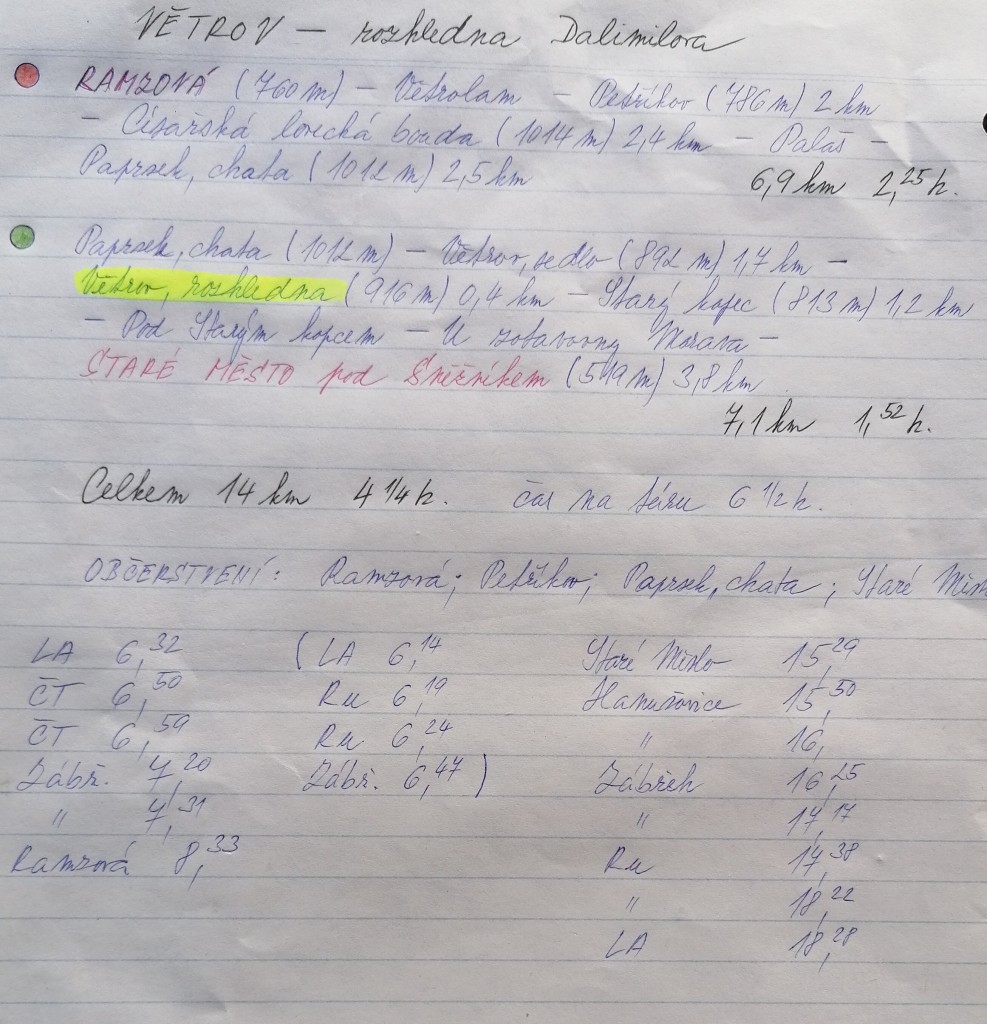 VĚTROV — rozhledna Dalimilova
RAMZOVÁ (760 m) — Větrolam — Petříkov (786 m) 2 km
— Císařská lovecká bouda (1014 m) 2,4 km — Palaš —
Paprsek, chata (1012 m) 2,5 km 6,9 km 2,25 h.
Paprsek, chata (1012 m) — Větrov, sedlo (892 m) 1,7 km —
Větrov, rozhledna (916 m) 0,4 km — Starý kopec (813 m) 1,2 km
— Pod Starým kopcem — U zotavovny Morava —
STARÉ MĚSTO pod Sněžníkem (549 m) 3,8 km
7,1 km 1,52 h.
Celkem 14 km 4 1/4 h. čas na túru 6 1/2 h.
OBČERSTVENÍ: Ramzová; Petříkov; Paprsek, chata; Staré Měst
LA 6,32 (LA 6,14 Staré Město 15,29
ČT 6,50 Ru 6,19 Hanušovice 15,50
ČT 6,59 Ru 6,24 " 16,
Zábř. 7,20 Zábř. 6,47) Zábřeh 16,25
" 7,31 " 17,17
Ramzová 8,33 Ru 17,38
" 18,22
LA 18,28